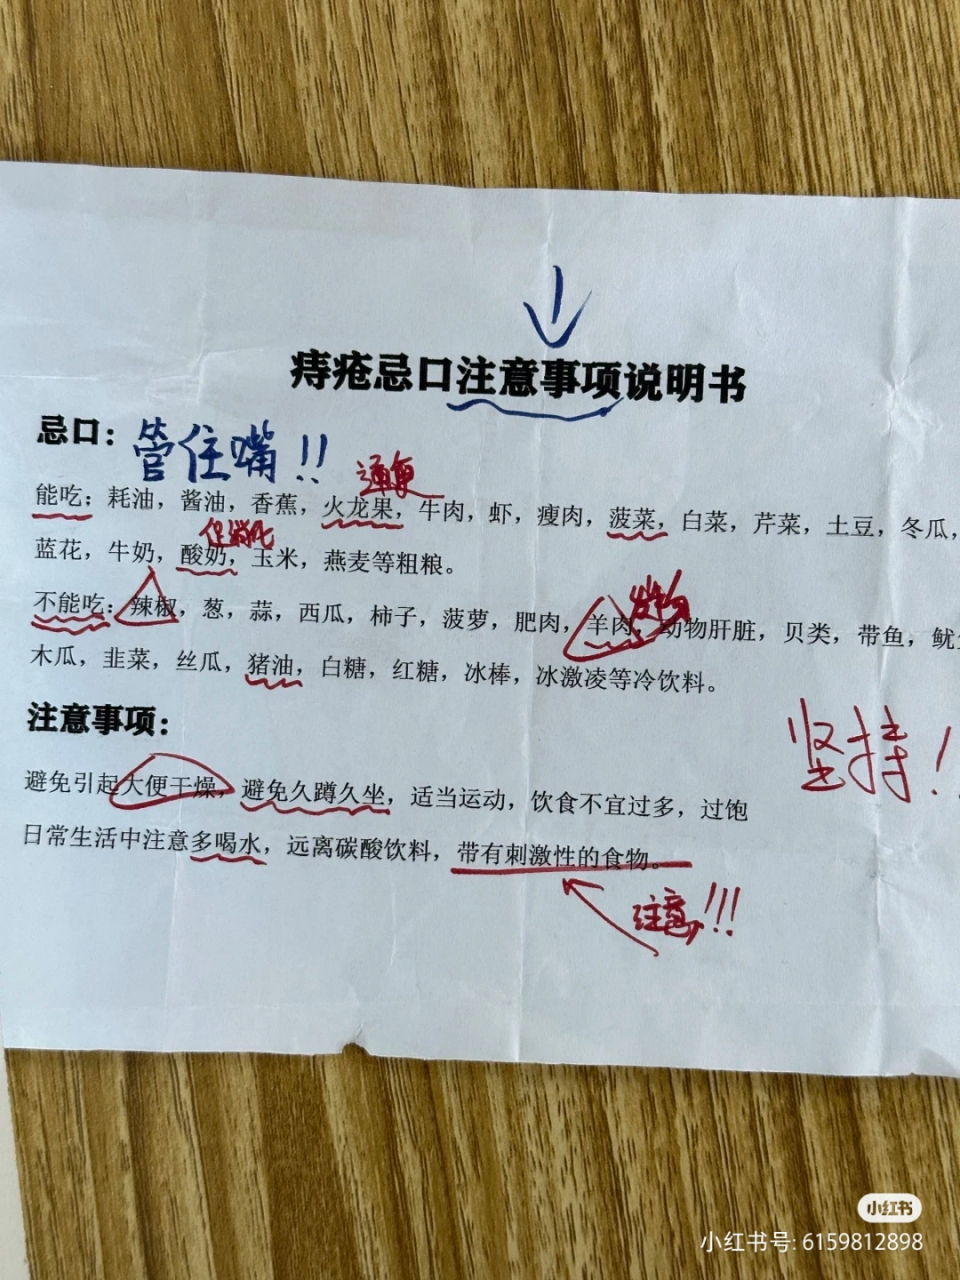 痔疮忌口注意事项说明书
忌口：管住嘴!!
通便
能吃：耗油，酱油，香蕉，火龙果，牛肉，虾，瘦肉，菠菜，白菜，芹菜，土豆，冬瓜，
促消化
蓝花，牛奶，酸奶，玉米，燕麦等粗粮。
发物
不能吃：辣椒，葱，蒜，西瓜，柿子，菠萝，肥肉，羊肉，动物肝脏，贝类，带鱼，鱿
木瓜，韭菜，丝瓜，猪油，白糖，红糖，冰棒，冰激凌等冷饮料。
坚持!
注意事项：
避免引起大便干燥，避免久蹲久坐，适当运动，饮食不宜过多，过饱
日常生活中注意多喝水，远离碳酸饮料，带有刺激性的食物。
注意!!!
小红书
小红书号: 6159812898